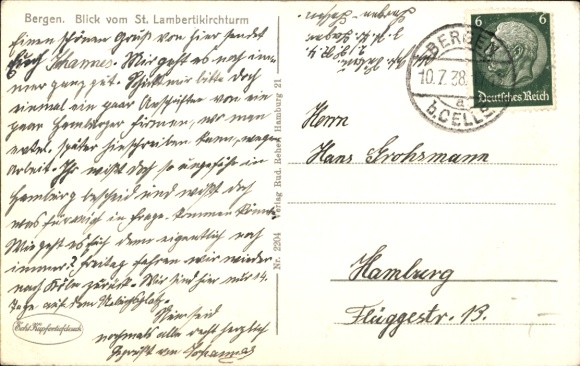 Bergen. Blick vom St. Lambertikirchturm
Einen schönen Gruß von hier sendet
Euch Johannes. Mir geht es noch im-
mer ganz gut. Schickt mir bitte doch
einmal ein paar Anschriften von ein
paar Hamburger Firmen, wo man
evtl. später hinschreiben kann, wegen
Arbeit. Ihr wißt doch so ungefähr in
Hamburg bescheid und wißt doch
was für mich in Frage kommen könnte.
Wie geht es Euch denn eigentlich noch
immer? Freitag fahren wir wieder
nach Köln zurück. Wir sind hier nur 14
Tage auf dem
Nun seid
nochmals alle recht herzlich
Gegrüßt von Johannes
Echt Kupfertiefdruck
Nr. 2204 Verlag Rud. Reher Hamburg 21
BERGEN
10.7.38
a
b. CELLE
6 6
Deutsches Reich
Herrn
Hans Grohsmann
Hamburg
Flüggestr. 13.